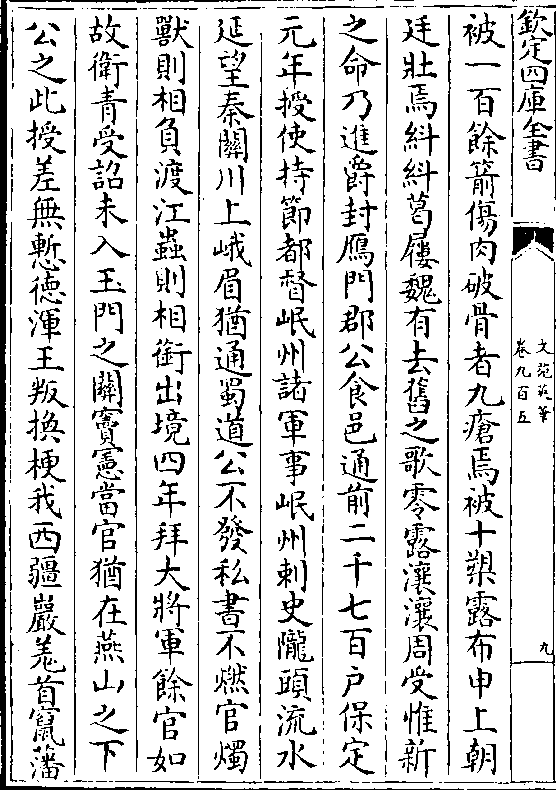 欽定四庫全書
文苑英華
卷九百五
九
被一百餘箭傷肉破骨者九瘡焉被十槊露布申上朝
廷壯焉糾糾葛屨魏有去舊之歌零露瀼瀼周受惟新
之命乃進爵封鴈門郡公食邑通前二千七百户保定
元年授使持節都督岷州諸軍事岷州刺史隴頭流水
延望秦關川上峨眉猶通蜀道公不發私書不燃官燭
獸則相負渡江蟲則相銜出境四年拜大將軍餘官如
故衛青受詔未入玉門之關竇憲當官猶在燕山之下
公之此授差無慙德渾王叛換梗我西疆巖羌首竄藩